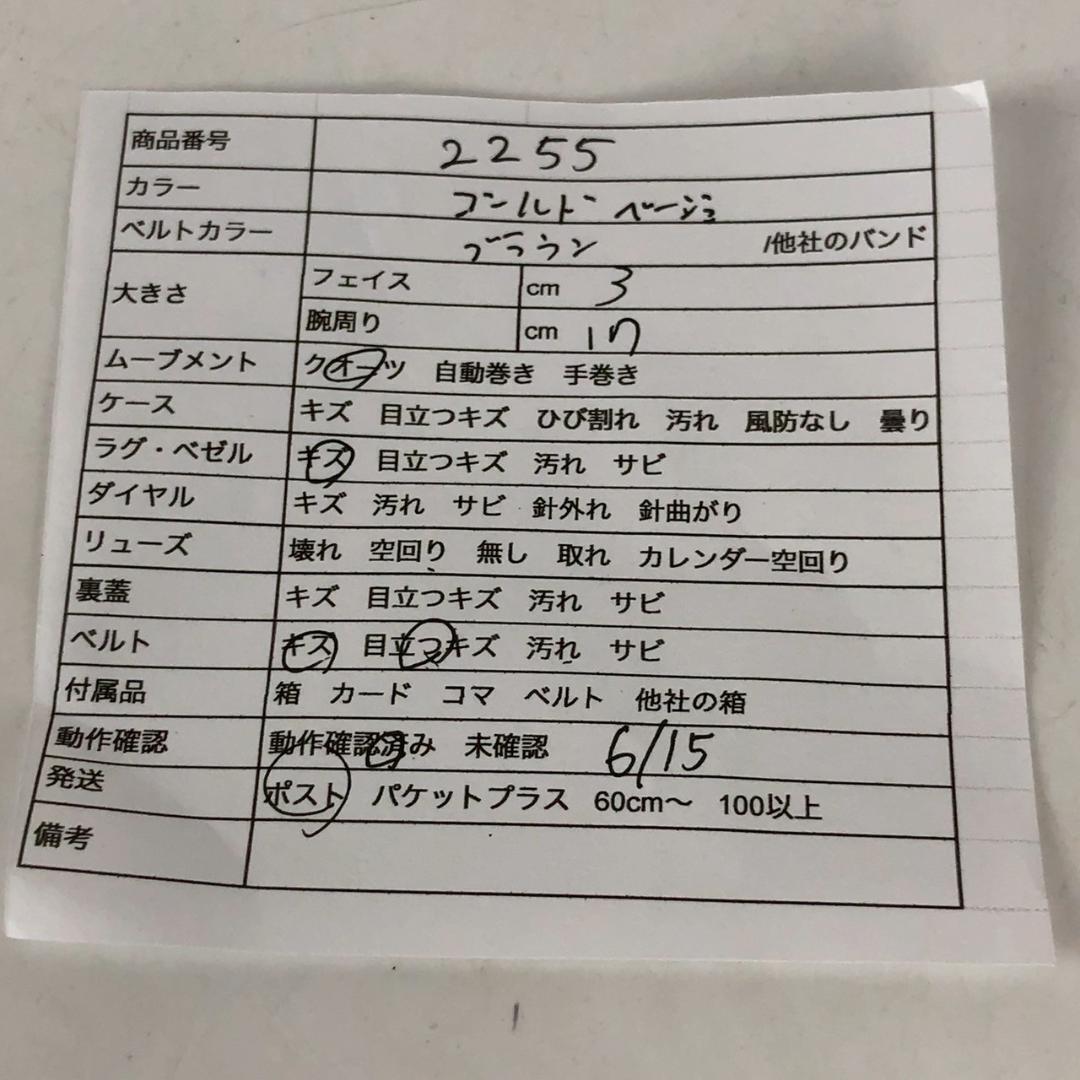 商品番号 2255
カラー ゴールド ベージュ
ベルトカラー ブラウン /他社のバンド
大きさ フェイス cm 3
腕周り cm 17
ムーブメント クオーツ 自動巻き 手巻き
ケース キズ 目立つキズ ひび割れ 汚れ 風防なし 曇り
ラグ・ベゼル キズ 目立つキズ 汚れ サビ
ダイヤル キズ 汚れ サビ 針外れ 針曲がり
リューズ 壊れ 空回り 無し 取れ カレンダー空回り
裏蓋 キズ 目立つキズ 汚れ サビ
ベルト キズ 目立つキズ 汚れ サビ
付属品 箱 カード コマ ベルト 他社の箱
動作確認 動作確認済み 未確認 6/15
発送 ポスト パケットプラス 60cm〜 100以上
備考